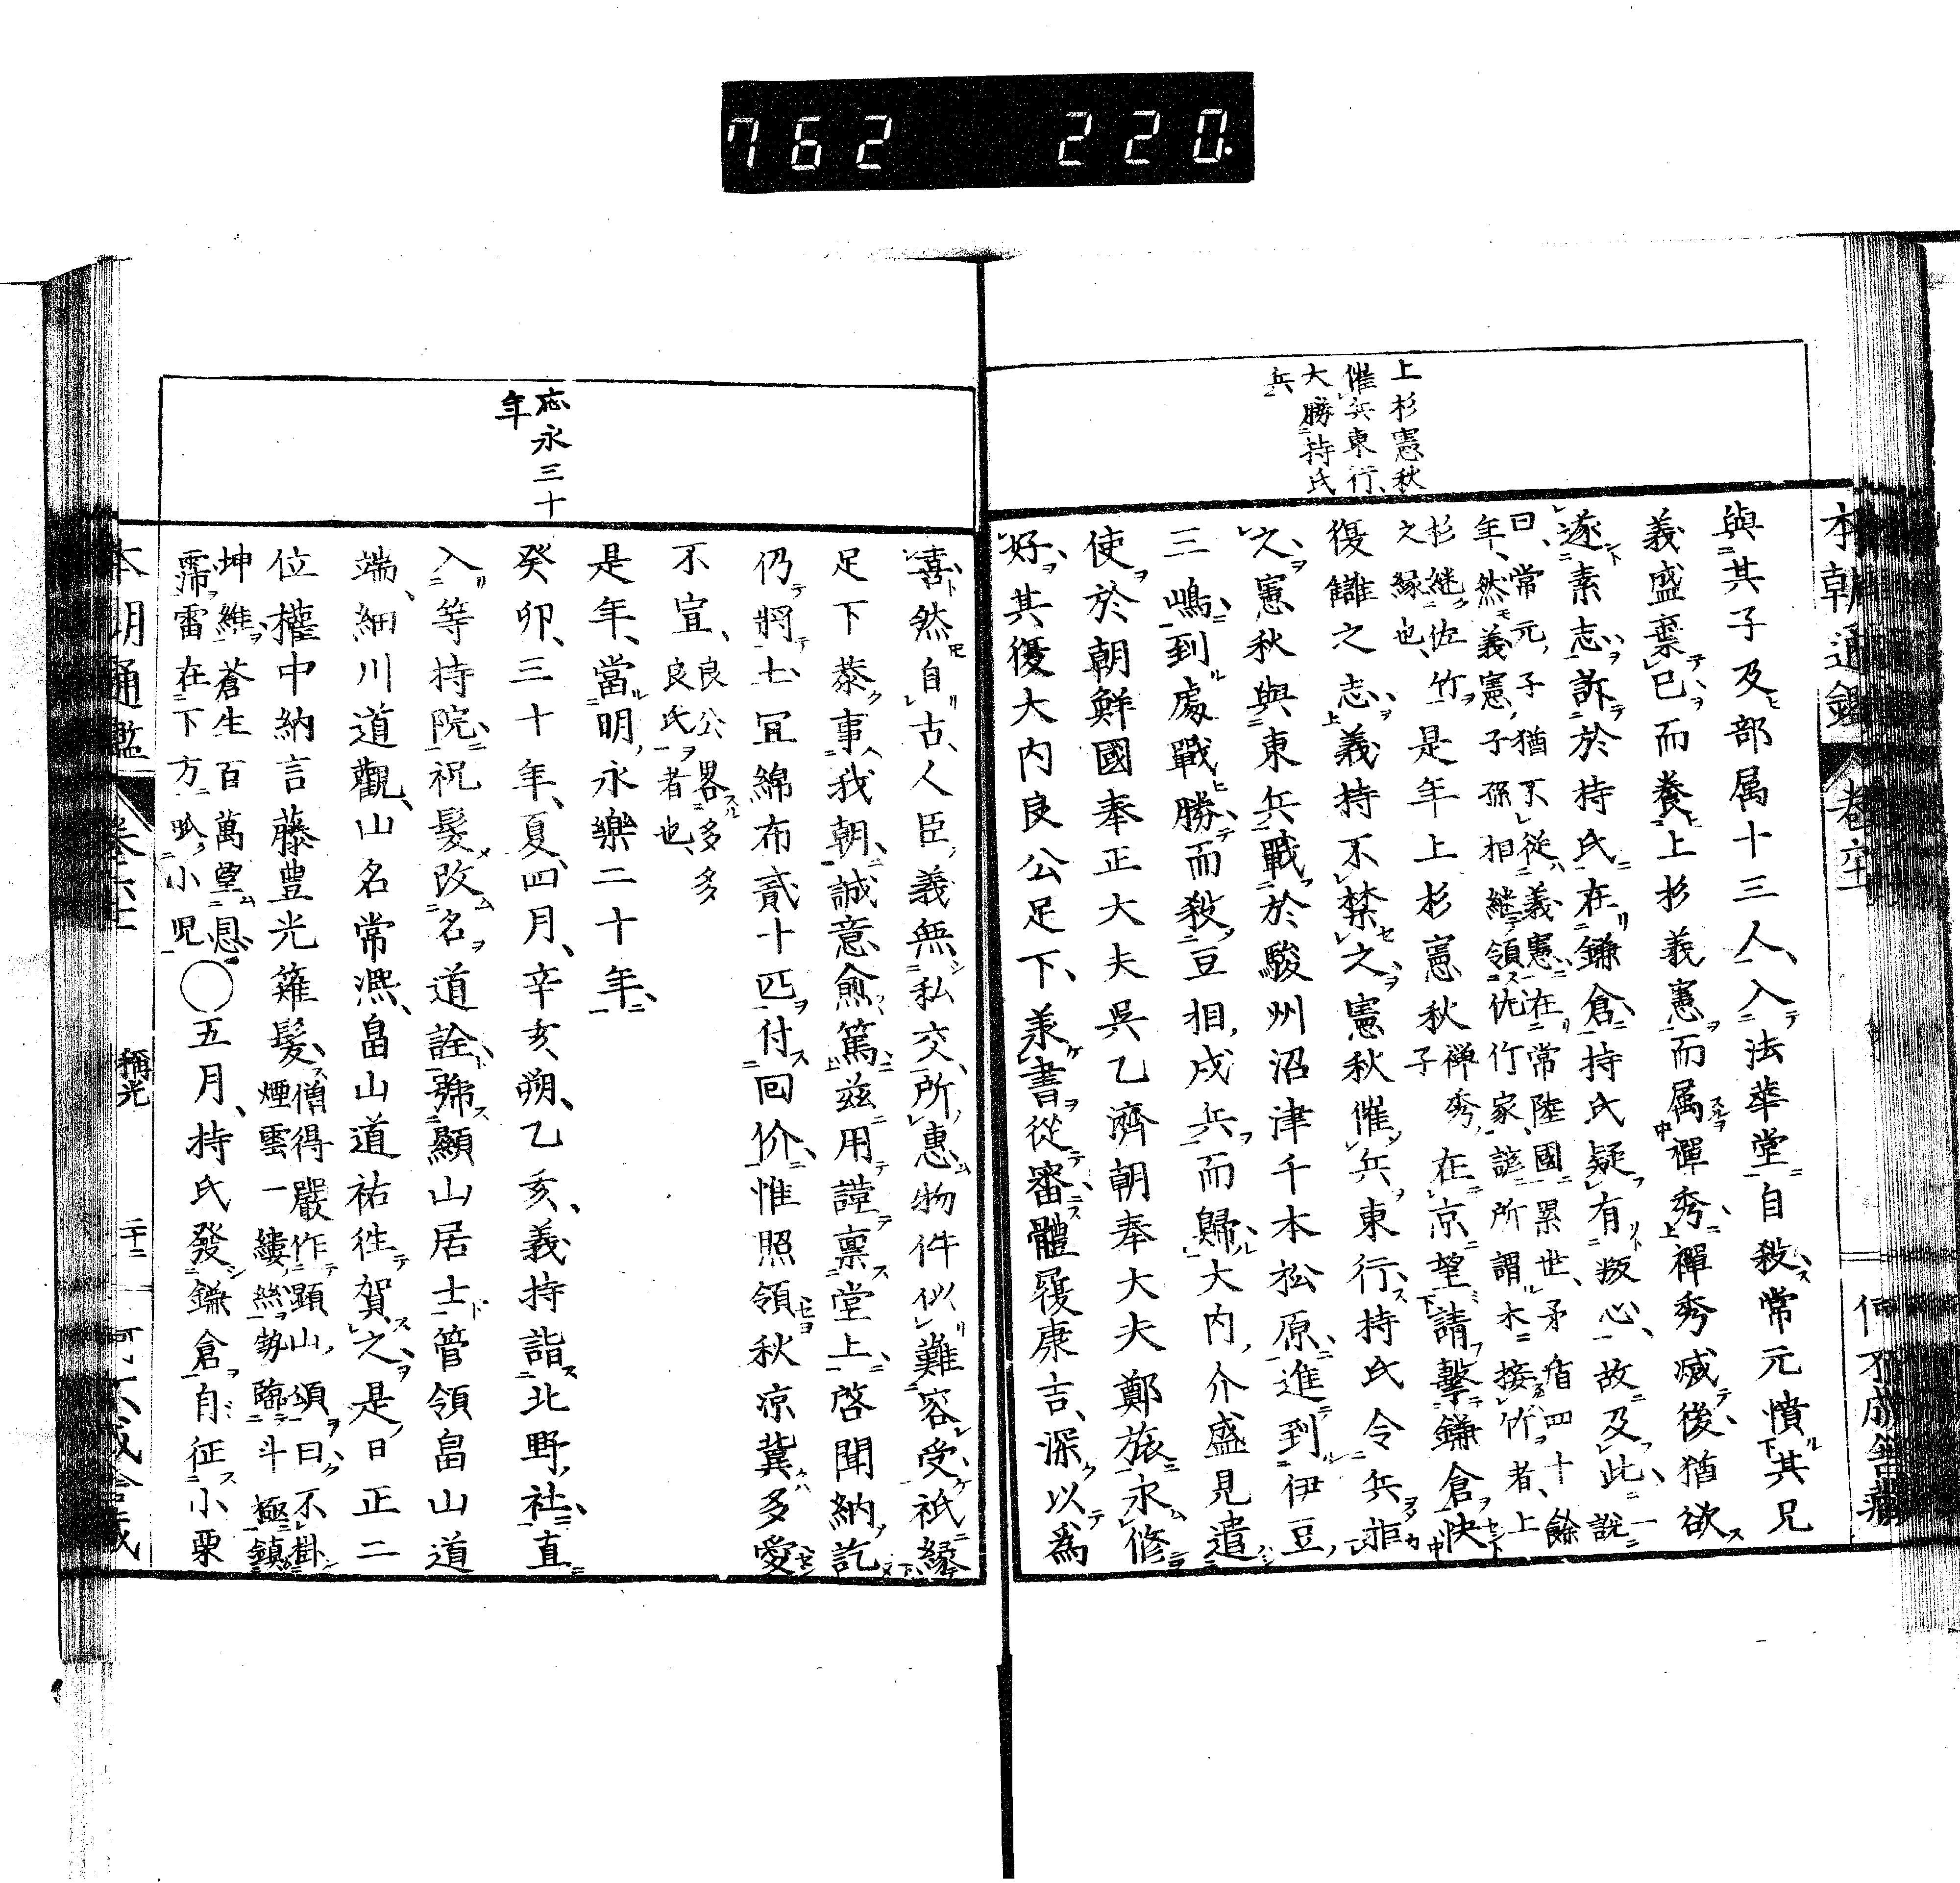 762 220.
上杉憲秋
催兵東行、
大勝持氏
兵
本朝通鑑
與其子及部属十三人、入法華堂自殺常元憤其兄
義盛棄己而養上杉義憲而属禪秀禪秀滅後猶欲
遂素志訴於持氏在鎌倉持氏疑有叛心、故及此一說
曰、常元子猶不從義憲在常陸國累世矛盾四十餘
年、然義憲子孫相継領佐竹家、諺所謂木接竹者、上
杉継佐竹
之縁也、
是年上杉憲秋
禅秀
子
在京望請擊鎌倉快
復讎之志義持不禁之憲秋催兵東行持氏令兵拒
之憲秋與東兵戰於駿州沼津千本松原進到伊豆
三嶋到處戰勝而殺豆相戍兵而歸大内介盛見遣
使於朝鮮國奉正大夫吳乙濟朝奉大夫鄭旅永修
好其復大内良公足下、羕書從審體履康吉、深以為
応永三十
年
喜然自古、人臣義無私交、所惠物件似難容受祇緣
足下恭事我朝誠意愈篤玆用謹禀堂上啓聞納訖
仍將土宜綿布貳十匹付回价惟照領秋凉冀多愛
不宣、
良公畧多多
良氏者也、
是年、當明永樂二十年
癸卯、三十年、夏、四月、辛亥朔、乙亥、義持詣北野社、直
入等持院祝髮改名道詮號顯山居士管領畠山道
端、細川道觀、山名常凞、畠山道祐徃賀之是日正二
位權中納言藤豊光薙髮
僧得嚴作顕山頌曰、不掛
煙雲一縷絲勢臨斗極鎮
坤維蒼生百萬望息
霈雷在下方吟小児
○五月、持氏發鎌倉自征小栗
稱光
二十二